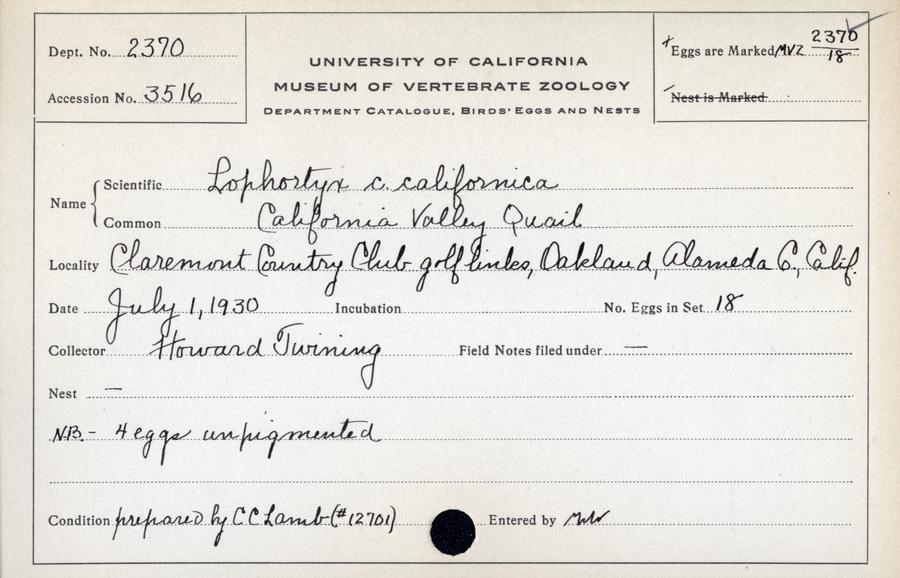 Dept. No. 2370
Accession No. 3516
UNIVERSITY OF CALIFORNIA
MUSEUM OF VERTEBRATE ZOOLOGY
DEPARTMENT CATALOGUE, BIRDS' EGGS AND NESTS
Eggs are Marked MVZ 2370/18
Nest is Marked
Name
Scientific Lophortyx c. californica
Common California Valley Quail
Locality Claremont Country Club golf links, Oakland, Alameda C., Calif.
Date July 1, 1930 Incubation No. Eggs in Set 18
Collector Howard Twining Field Notes filed under —
Nest —
N.B. - 4 eggs unpigmented
Condition prepared by C C Lamb (#12701) Entered by